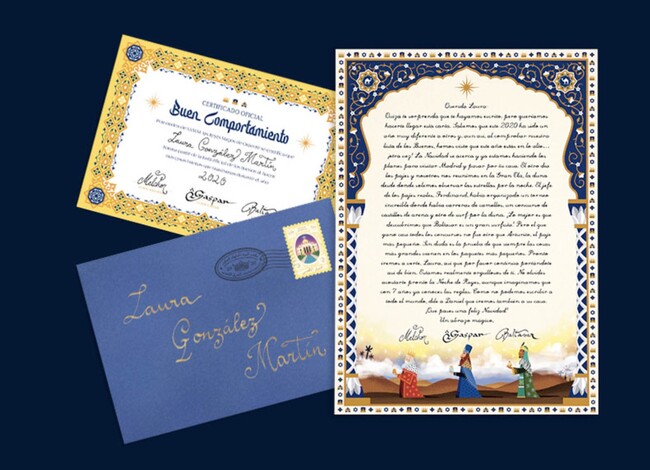 CERTIFICADO OFICIAL
Buen Comportamiento
Laura González Martín
2020
Melchor Gaspar Baltasar
Laura
González
Martín
Querida Laura
Quizá te sorprenda que te hayamos escrito, pero queríamos
hacerte llegar esta carta. Sabemos que este 2020 ha sido un
año muy diferente a otros y, aun así, al comprobar nuestra
lista de los Buenos, hemos visto que este año estás en lo alto...
¡otra vez! La Navidad se acerca y ya estamos haciendo los
planes para visitar Madrid y pasar por tu casa. El otro día
los pajes y nosotros nos reunimos en la Gran Duna, la duna
desde donde solemos observar las estrellas por la noche. El jefe
de los pajes reales, Ferdinand, había organizado un torneo
increíble donde había carreras de camellos, un concurso de
castillos de arena y otro de surf por la duna. Lo mejor es que
descubrimos que Baltasar es un gran surfista! Pero el que
ganó casi todos los concursos no fue otro que Abraním, el paje
más pequeño. Sin duda es la prueba de que siempre las cosas
más grandes vienen en los paquetes más pequeños. Pronto
iremos a verte, Laura, así que por favor continúa portándote
así de bien. Estamos realmente orgullosos de ti. No olvides
acostarte pronto la Noche de Reyes, aunque imaginamos que
con 7 años ya conoces las reglas. Como no podemos escribir a
todo el mundo, dile a Daniel que iremos también a su casa.
¡Que pases una feliz Navidad!
Un abrazo mágico,
Melchor Gaspar Baltasar